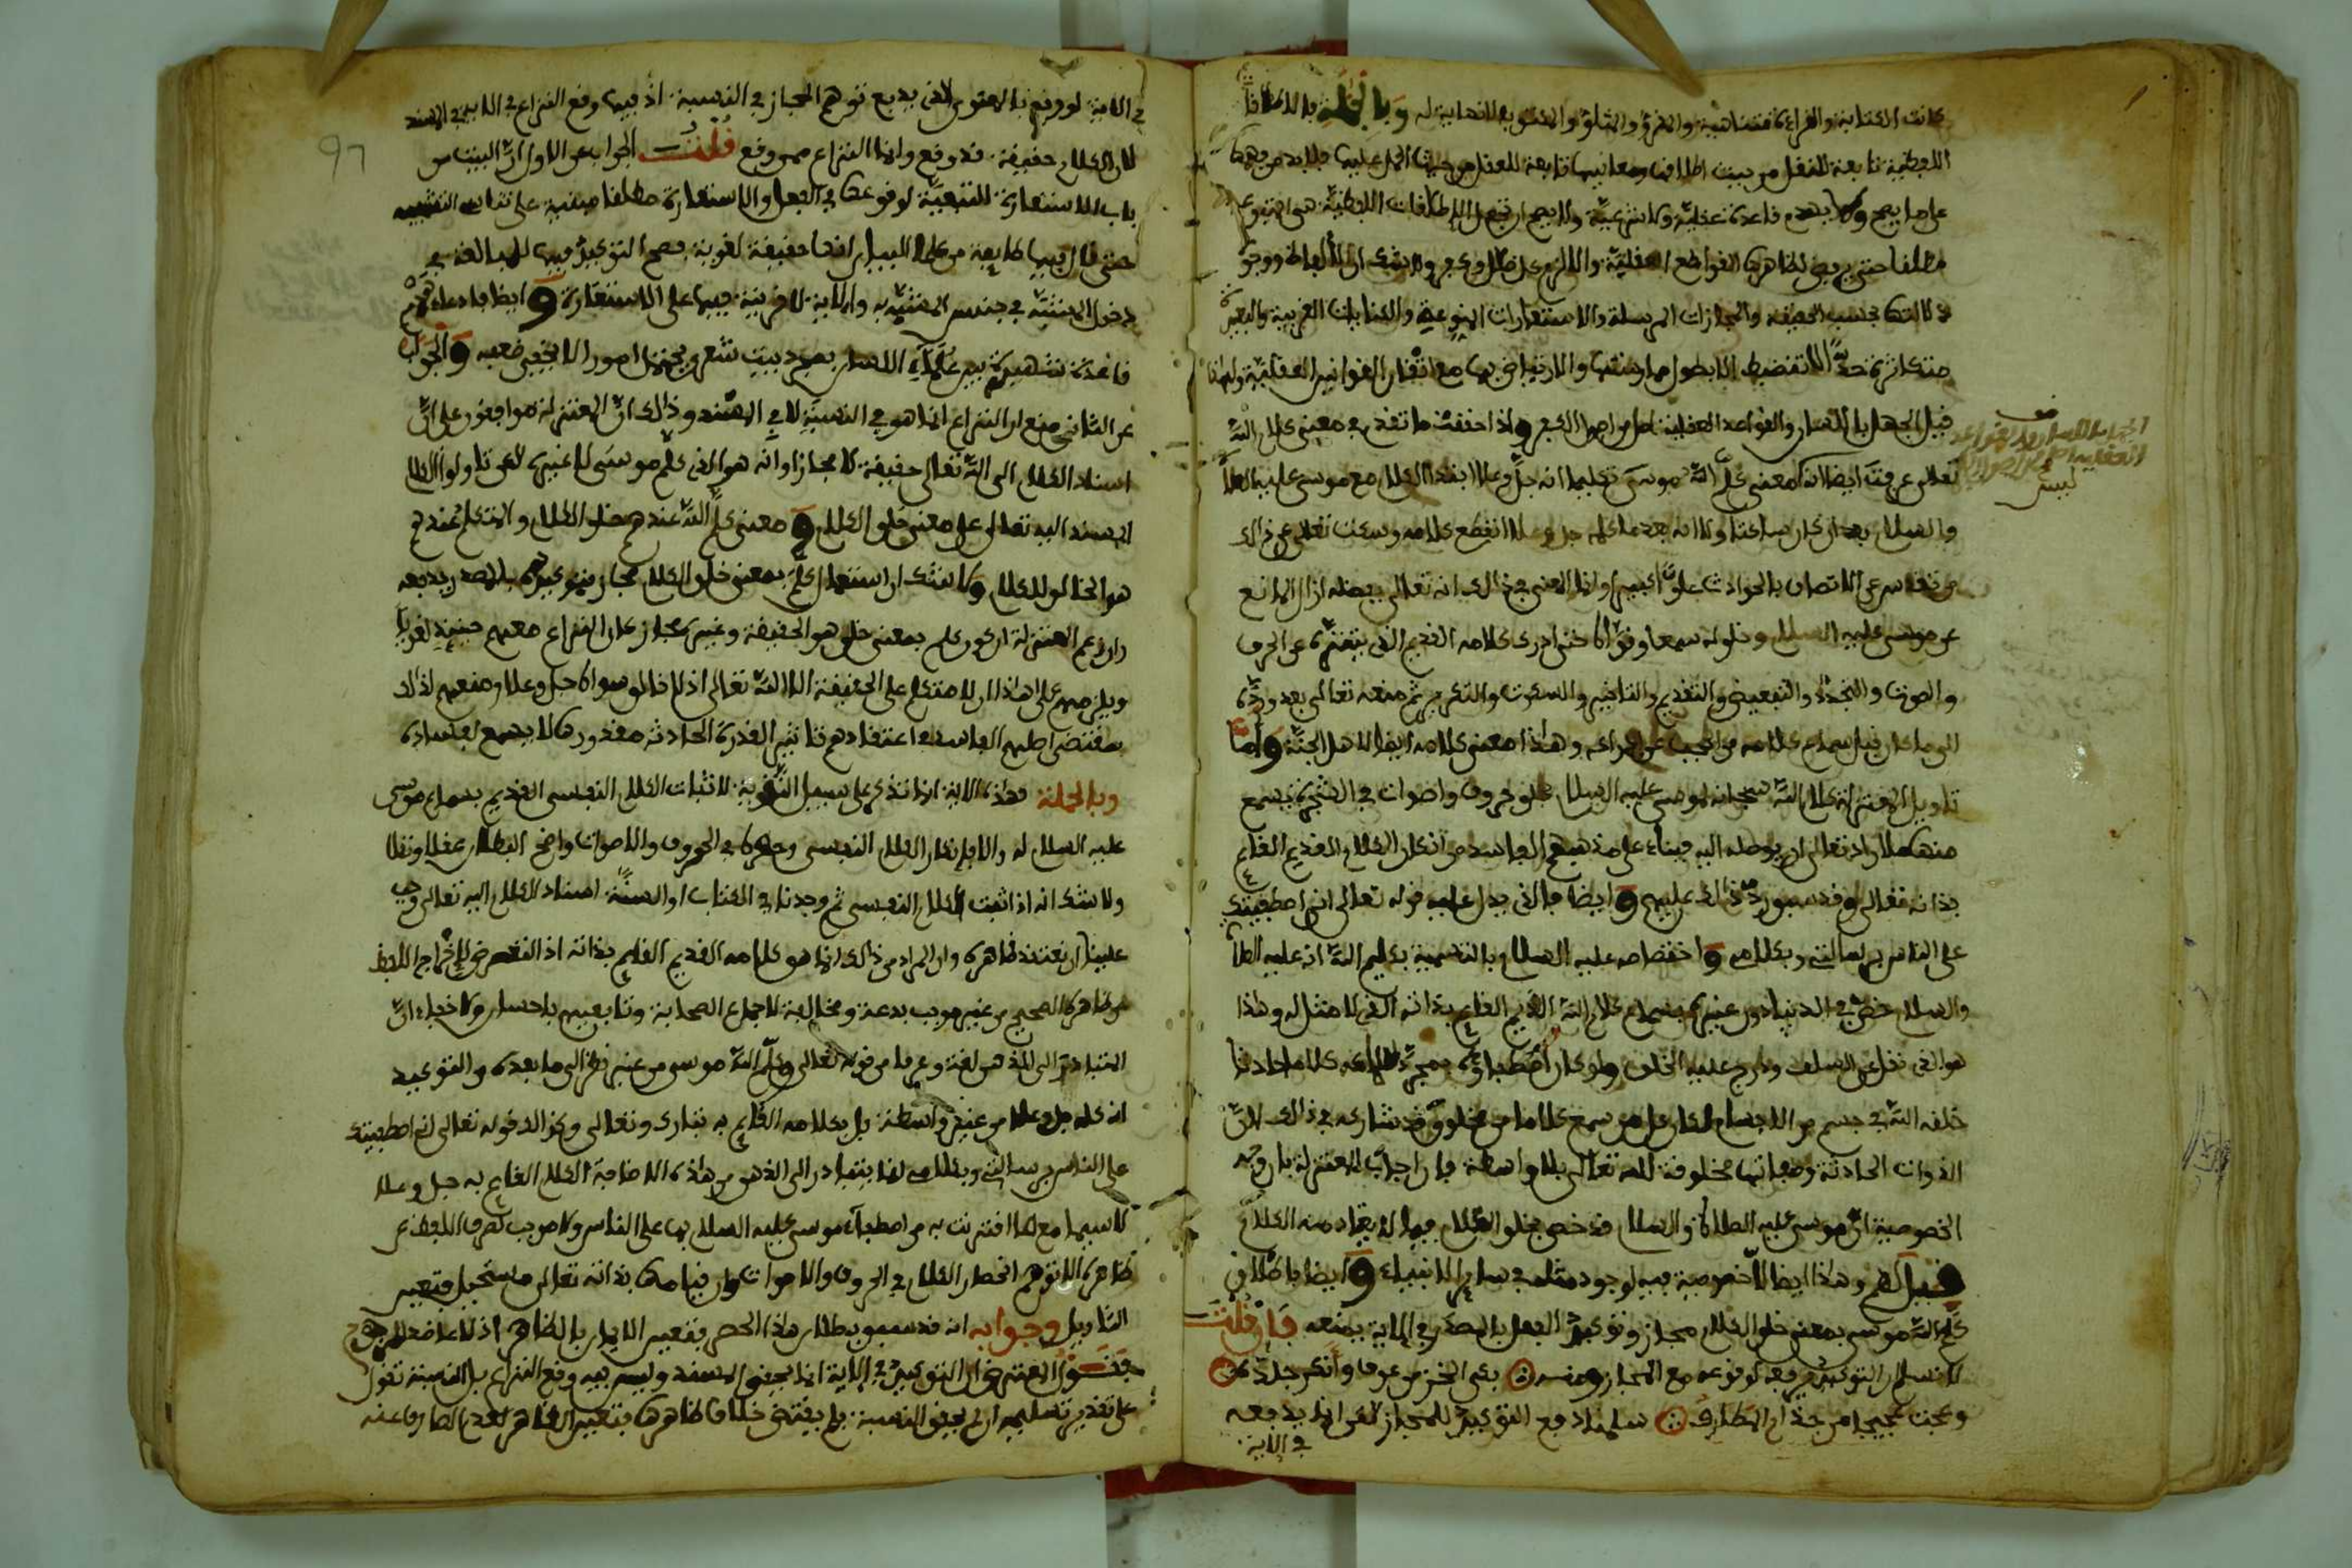 كانت الكتابة والقراءة متناهية والمقروء والمتلو والمكتوب لا نهاية له وبالجملة فالاطلاقات
اللفظية تابعة للنقل من حيث اطلاقها ومعانيها تابعة للعقل من حيث الحمل عليها فلا بد من فهمها
على ما يصح ولا يهدم قاعدة عقلية ولا شرعية ولا يصح ان تجعل الاطلاقات اللفظية هي المتبوعة
مطلقا حتى يرفض لظاهرها القواطع العقلية والا لزم كل ضلال وكفر ولا شك ان الالفاظ ووجوه
دلالاتها بحسب الحقيقة والمجازات المرسلة والاستعارات المنوعة والكنايات القريبة والبعيدة
متكاثرة جدا لا تنضبط الا بطول ممارستها والارتياض بها مع اتقان القوانين العقلية ولهذا
قيل الجهل باللسان والقواعد العقلية اصل من اصول الكفر واذا حققت ما تقدم في معنى كلام الله
تعالى عرفت ايضا انه معنى كلم الله موسى تكليما انه جل وعلا ابتدا الكلام مع موسى عليه الصلاة
والسلام بعد ان كان ساكتا ولا انه بعد ما كلمه جل وعلا انقطع كلامه وسكت تعالى عن ذلك
وتقدس عن الاتصاف بالحوادث علوا كبيرا وانما المعنى في ذلك انه تعالى بفضله ازال المانع
عن موسى عليه السلام وخلق له سمعا وقواه حتى ادرك كلامه القديم الذي يتنزه عن الحرف
والصوت والتجدد والتبعيض والتقديم والتاخير والسكوت والتكرير ثم منعه تعالى بعد ورده
الى ما كان قبل سماع كلامه وهذا معنى كلامه ايضا لاهل الجنة واما
تاويل المعتزلة كلام الله سبحانه لموسى عليه السلام بخلق حروف واصوات في الشجرة يسمع
منها ما اراد تعالى ان يوصله اليه فبناء على مذهبهم الفاسد من انكار الكلام القديم القائم
بذاته تعالى وقد سبق رد ذلك عليهم وايضا فالذي يدل عليه قوله تعالى اني اصطفيتك
على الناس برسالتي وبكلامي واختصاصه عليه السلام بالتسمية بكليم الله انه عليه الصلاة
والسلام خص في الدنيا دون غيره بسماع كلام الله القديم القائم بذاته الذي لا مثل له وهذا
هو الذي نقل عن السلف ودرج عليه الخلف ولو كان اصطفاؤه بمجرد سماعه كلاما حادثا
خلقه الله في جسم من الاجسام لكان كل من سمع كلاما من مخلوق قد شاركه في ذلك لان
الذوات الحادثة وصفاتها مخلوقة لله تعالى بلا واسطة فان اجاب المعتزلة بان وجه
الخصوصية ان موسى عليه الصلاة والسلام قد خص بخلق الكلام فيما لا يعتاد منه الكلام
قيل لهم وهذا ايضا لا خصوصية فيه لوجود مثله في سائر الانبياء وايضا فاطلاق
كلم الله موسى بمعنى خلق الكلام مجاز وتوكيد الفعل بالمصدر في الاية يمنعه فان قلت
لا نسلم ان التوكيد يرفعه لوقوعه مع المجاز ومنه بكى الخز من عوف وانكر جلده
وعجت عجيجا من جذام المطارف سلمنا دفع التوكيد للمجاز لكن انما يدفعه
في الاية
ضعف
الجهل باللسان والقواعد
العقلية اصل من اصول الكفر
ليس
٩٦
في الاية لو وقع بالمعنوي الذي يدفع توهم المجاز في النسبة اذ فيها وقع النزاع في الاية في المسند
لان الكلام حقيقة قد وقع وانما النزاع ممن وقع قلت الجواب عن الاول ان البيت من
باب الاستعارة التبعية لوقوعها في الفعل والاستعارة مطلقا مبنية على تناسي التشبيه
حتى قال فيها طايفة من علماء البيان انها حقيقة لغوية فصح التوكيد فيها للمبالغة في
دخول المشبه في جنس المشبه به والاية لا قرينة فيها على الاستعارة وايضا فادعاء هدم
قاعدة شهيرة بين علماء اللسان بمجرد بيت شعر يحتمل امورا لا يخفى ضعفه والجواب
عن الثاني منع ان النزاع انما هو في النسبة لا في المسند وذلك ان المعتزلة موافقون على ان
اسناد الكلام الى الله تعالى حقيقة لا مجازا وانه هو الذي كلم موسى لا غيره لكن تاولوا الكلام
المسند اليه تعالى على معنى خلق الكلام ومعنى كلم الله عندهم خلق الكلام والمتكلم عندهم
هو الخالق للكلام ولا شك ان استعمال كلم بمعنى خلق الكلام مجاز فتوكيده بالمصدر يدفعه
وان زعم المعتزلة ان كون كلم بمعنى خلق هو الحقيقة وغيره مجاز كان النزاع معهم حينئذ لغويا
ويلزمهم على هذا ان لا متكلم على الحقيقة الا الله تعالى اذ لا خالق سواه جل وعلا ومنعهم لذلك
بمقتضى اصلهم الفاسد في اعتقادهم تاثير القدرة الحادثة في مقدورها لا يسمع لفساده
وبالجملة فهذه الاية انما تذكر على سبيل التقوية لاثبات الكلام النفسي القديم بسماع موسى
عليه السلام له والا فانكار الكلام النفسي وحصره في الحروف والاصوات واضح البطلان عقلا ونقلا
ولا شك انه اذا ثبت الكلام النفسي ثم وجدنا في الكتاب او السنة اسناد الكلام اليه تعالى وجب
علينا ان نعتقد ظاهره وان المراد من ذلك انما هو كلامه القديم القائم بذاته اذ التعرض لاخراج اللفظ
عن ظاهره الصحيح من غير موجب بدعة ومخالفة لاجماع الصحابة وتابعيهم باحسان ولا خفاء ان
المتبادر الى الذهن لغة وعرفا من قوله تعالى وكلم الله موسى من غير نظر الى ما بعده والتوكيد
انه كلمه جل وعلا من غير واسطة بل بكلامه القائم به تبارك وتعالى وكذلك قوله تعالى اني اصطفيتك
على الناس برسالتي وبكلامي انما يتبادر الى الذهن من هذه الاضافة الكلام القائم به جل وعلا
لا سيما مع ما اقترنت به من اصطفاء موسى عليه السلام بها على الناس ولا موجب لصرف اللفظ عن
ظاهره الا توهم انحصار الكلام في الحروف والاصوات وان قيامها بذاته تعالى مستحيل فتعين
التاويل وجوابه انه قد سبق بطلان هذا الحصر فتعين الايمان بالظاهر اذ لا عاضد للمرجوح
فتسور المعتزلة ان التوكيد في الاية انما يحقق المسند وليس فيه وقع النزاع بل النسبة نقول
على تقدير تسليمه ان لم يحقق النسبة فلم يقتضي خلاف ظاهرها فتعين الظاهر لعدم الصارف عنه